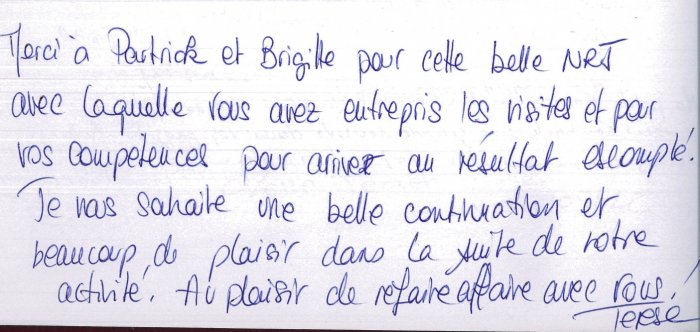 Merci à Patrick et Brigitte pour cette belle NRJ
avec laquelle vous avez entrepris les visites et pour
vos compétences pour arriver au résultat escompté.
Je vous souhaite une belle continuation et
beaucoup de plaisir dans la suite de votre
activité. Au plaisir de refaire affaire avec vous!